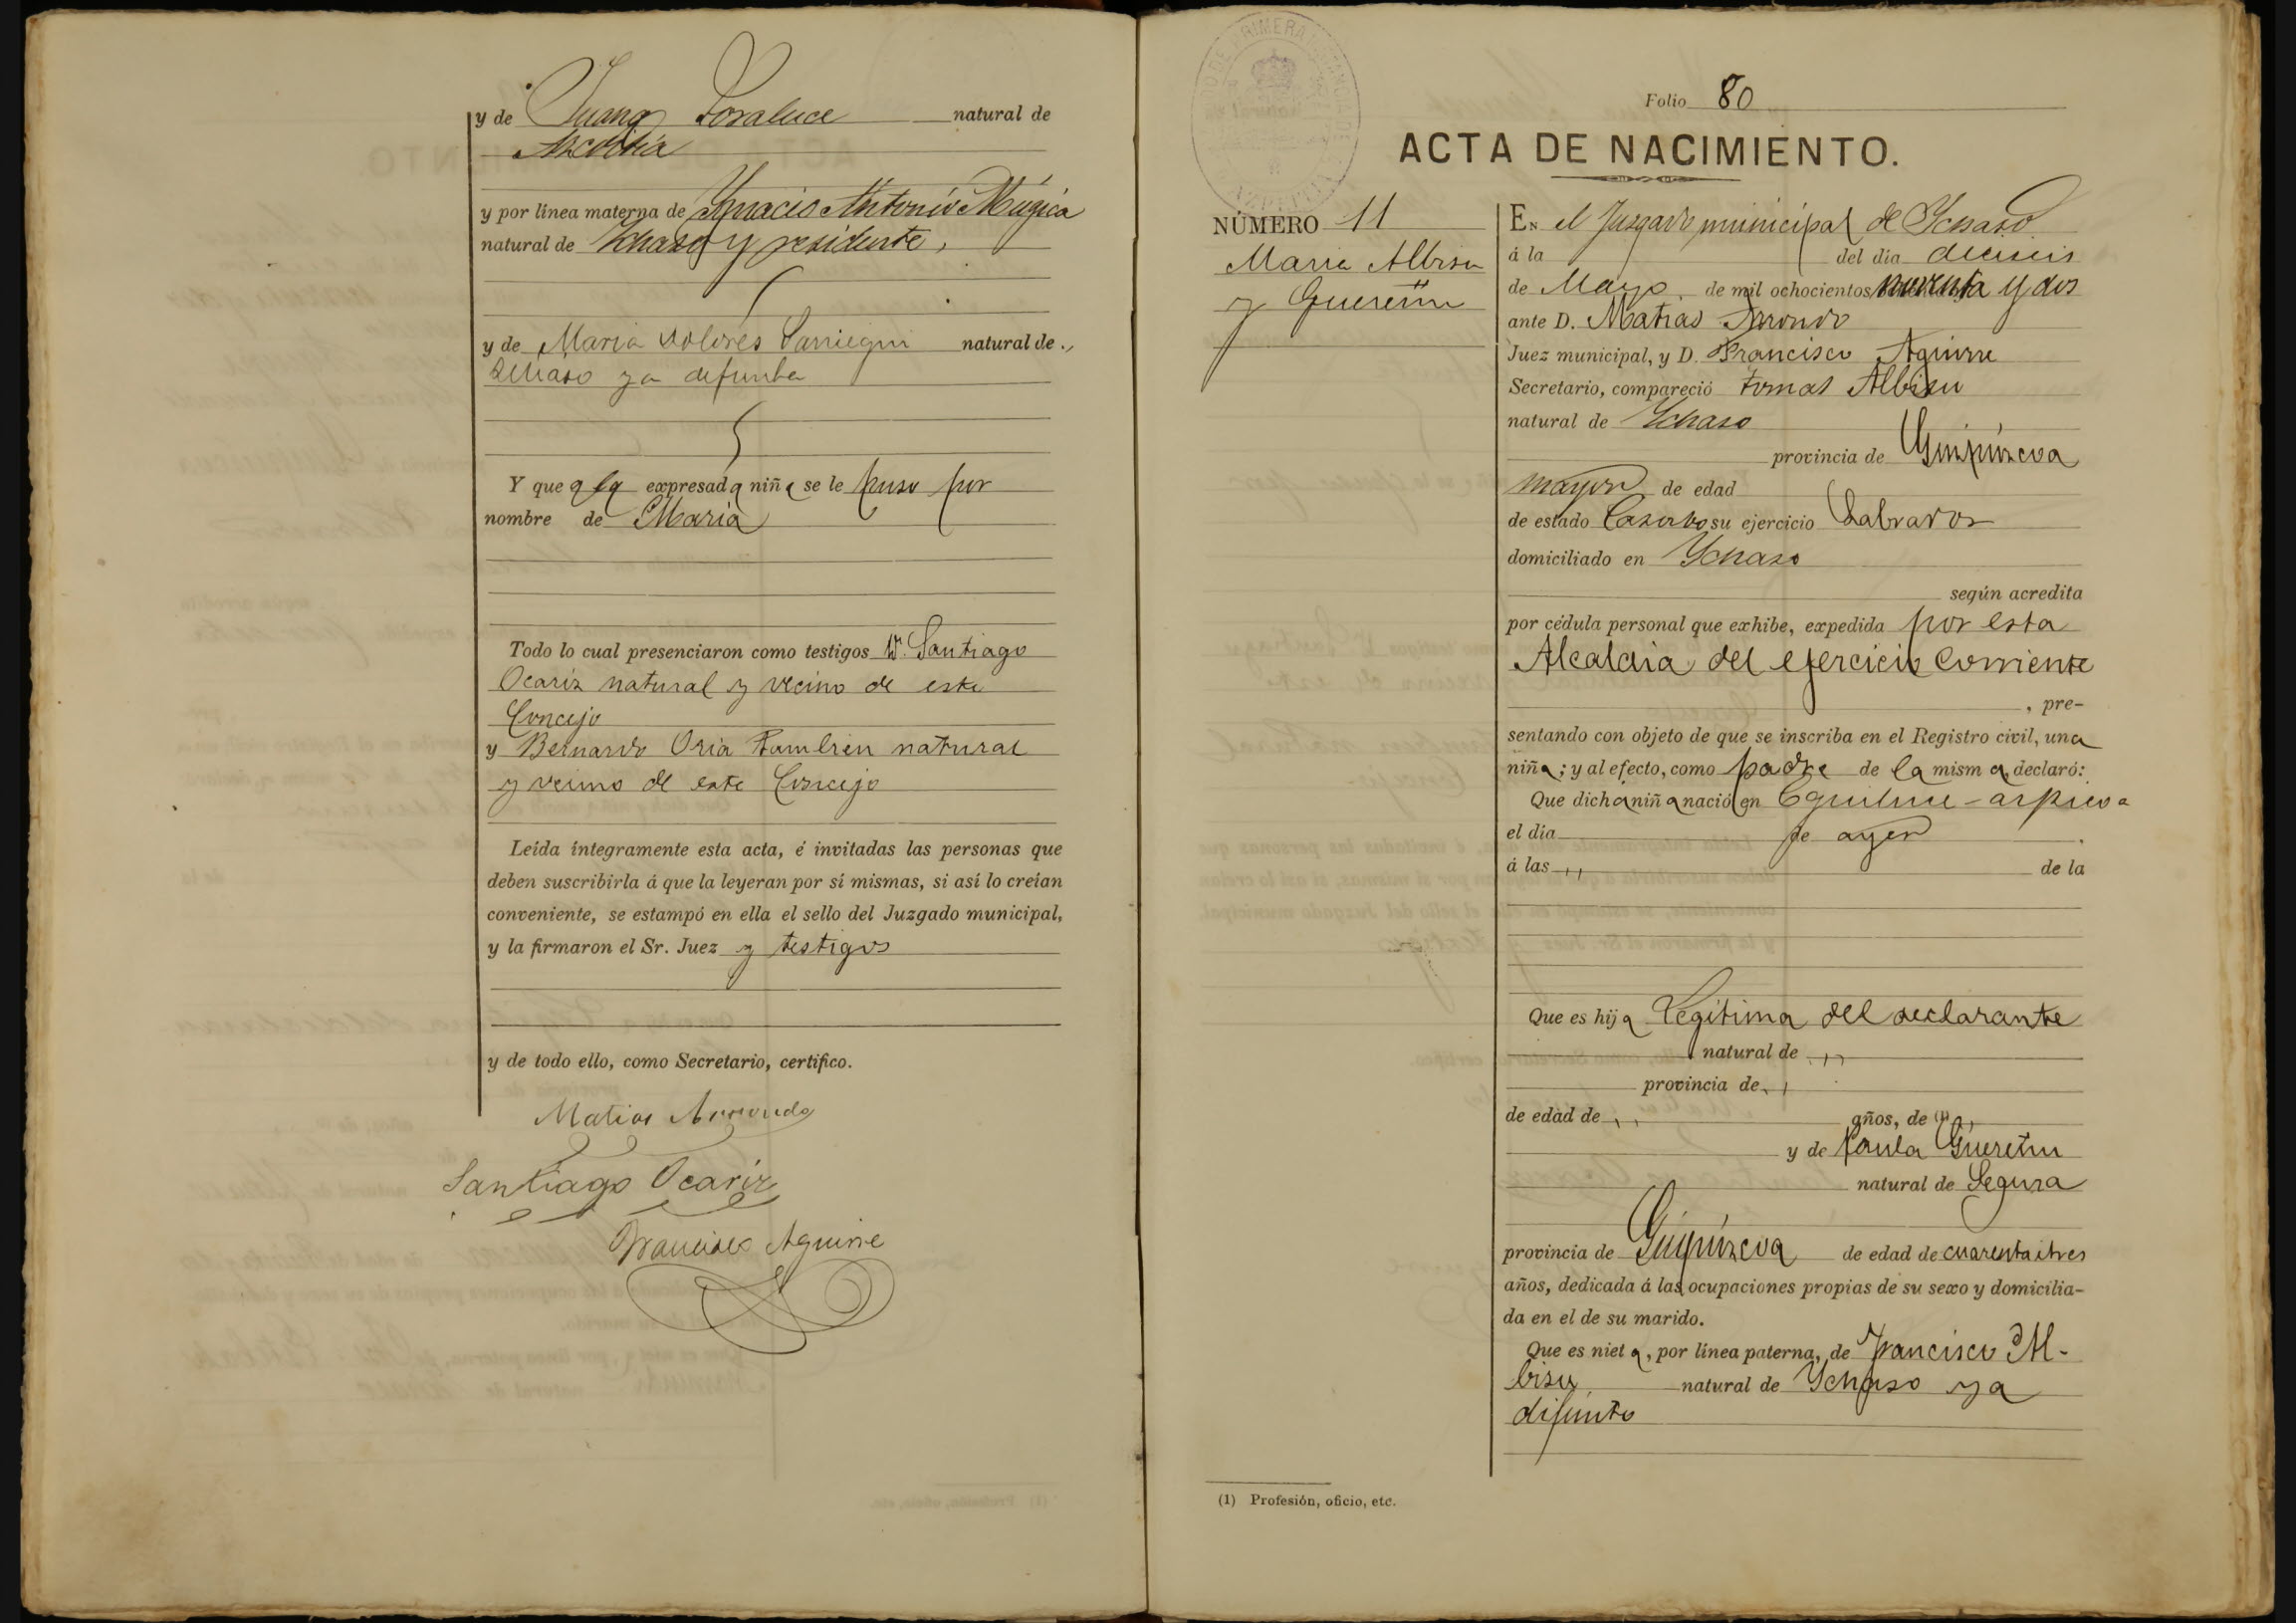 y de Juana Loraluce natural de
Azcoitia
y por línea materna de Ygnacio Antonio Múgica
natural de Ychaso y residente,
y de Maria Dolores Sarriegui natural de
Ychaso ya difunta
Y que a la expresada niña se le puso por
nombre de Maria
Todo lo cual presenciaron como testigos D. Santiago
Ocariz natural y vecino de este
Concejo
y Bernardo Oria tambien natural
y vecino de este Concejo
Leída íntegramente esta acta, é invitadas las personas que
deben suscribirla á que la leyeran por sí mismas, si así lo creían
conveniente, se estampó en ella el sello del Juzgado municipal,
y la firmaron el Sr. Juez y testigos
y de todo ello, como Secretario, certifico.
Matias Arrondo
Santiago Ocariz
Francisco Aguirre
Folio 80
ACTA DE NACIMIENTO.
NÚMERO 11
Maria Albisu
y Gueretiu
En el Juzgado municipal de Ychaso
á la del dia dieciseis
de Mayo de mil ochocientos noventa y dos
ante D. Matias Arrondo
Juez municipal, y D. Francisco Aguirre
Secretario, compareció Tomas Albisu
natural de Ychaso
provincia de Guipúzcoa
mayor de edad
de estado Casado su ejercicio Labrador
domiciliado en Ychaso
según acredita
por cédula personal que exhibe, expedida por esta
Alcaldia del ejercicio corriente
, pre-
sentando con objeto de que se inscriba en el Registro civil, una
niña; y al efecto, como padre de la misma, declaró:
Que dicha niña nació en
el dia de ayer
á las ,, de la
Que es hija Legitima del declarante
natural de ,,
provincia de ,,
de edad de ,, años, de (1) ,,
y de Paula Gueretiu
natural de Segura
provincia de Guipúzcoa de edad de cuarenta i tres
años, dedicada á las ocupaciones propias de su sexo y domicilia-
da en el de su marido.
Que es nieta, por línea paterna, de Francisco Al-
bisu natural de Ychaso ya
difunto
(1) Profesión, oficio, etc.